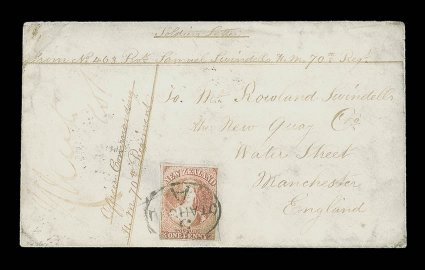 Soldiers Letter
From No 463 Pvt Samuel Swindells H. M. 70th Regt
To Mr Rowland Swindells
the New Quay Co
Water Street
Manchester
England
Officer Commanding
H. M. 70th Regiment
NEW ZEALAND
ONE PENNY